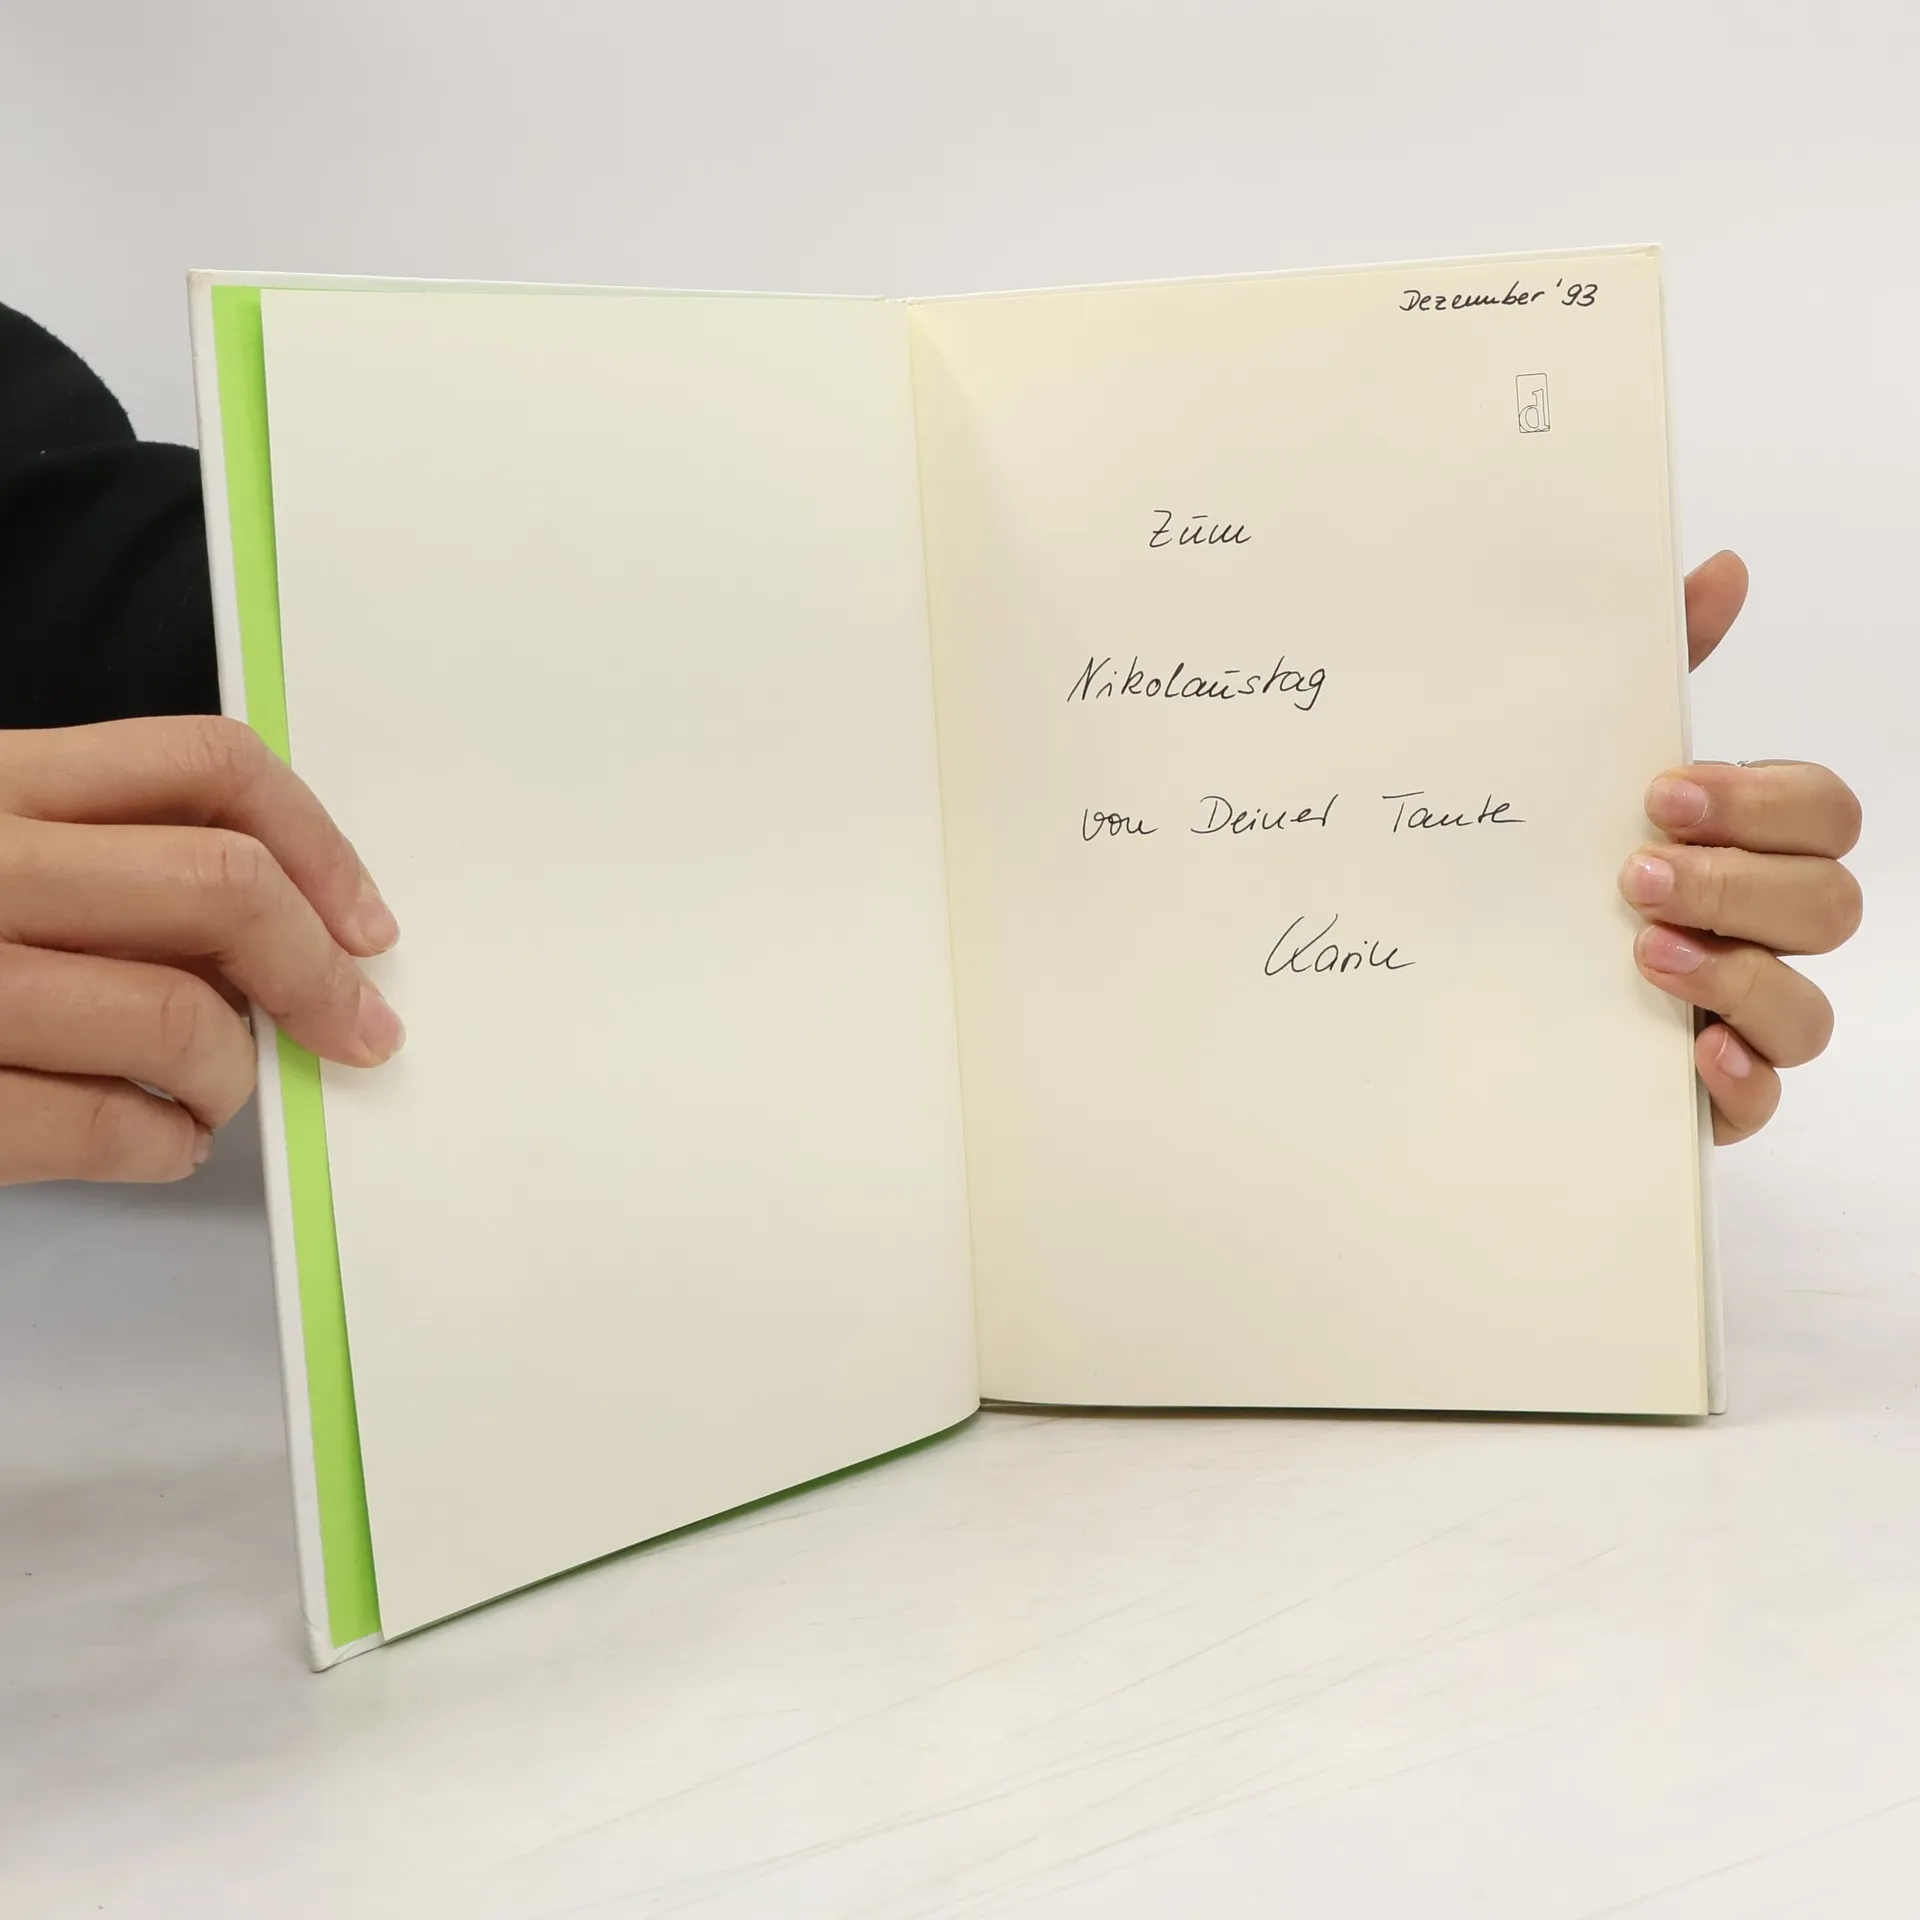 Dezember '93
d
Zum
Nikolaustag
von Deiner Tante
Karin